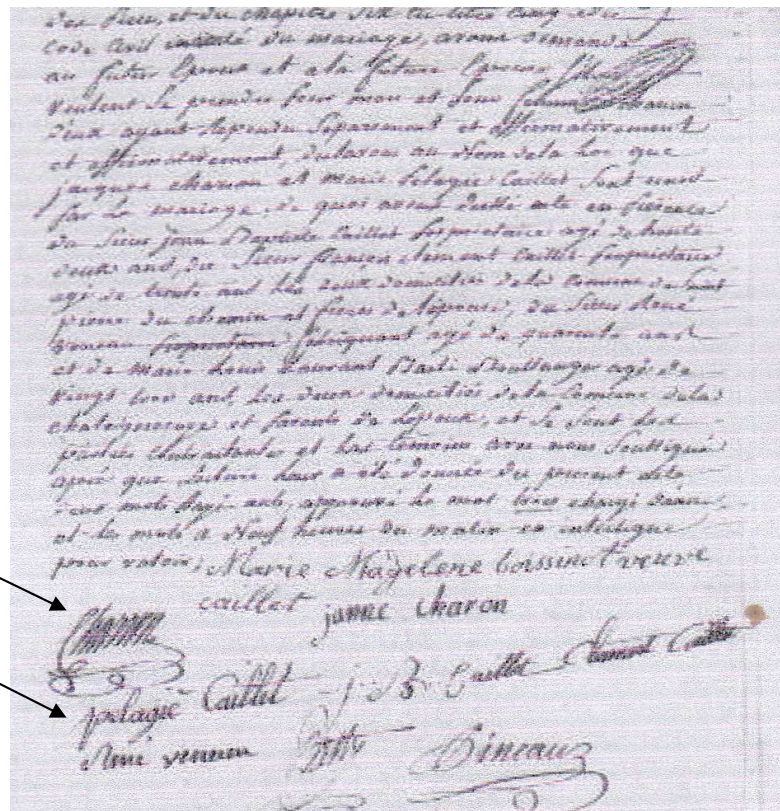 des pieces, et du chapitre six du titre cinq du
Code Civil intitulé du mariage, avons demandé
au futur Epoux et a la future Epouse
veulent se prendre pour mari et pour femme chacun
d'eux ayant repondu separement et affirmativement
et affirmativement, declarons au Nom de la Loi que
jacques charon et marie Pelagie Caillet sont unis
par Le mariage, de quoi avons dressé acte en présence
du Sieur jean Baptiste Caillet proprietaire agé de trente
deux ans, du Sieur clement Caillet proprietaire
agé de trente ans Les deux domiciliés de la Commune de Saint
pierre du chemin et freres de l'épouse, du Sieur René
veneau proprietaire fabriquant agé de quarante ans
et de marie Louis Laurant Boulanger agé de
vingt ans, Les deux domiciliés de la Commune de la
chataigneraye et parents de L'époux, et se sont les
parties Contractantes et Les temoins avec nous Soussigné
après que Lecture Leur a été donnée du present acte
mots ans, approuvé Le mot
et Les mots a Neuf heures du matin en interligne
pour valoir, Marie Magdelene boissinot veuve
caillet janne charon
Charon
pelagie Caillet J. B. Caillet Clement Caillet
René veneau Bineau